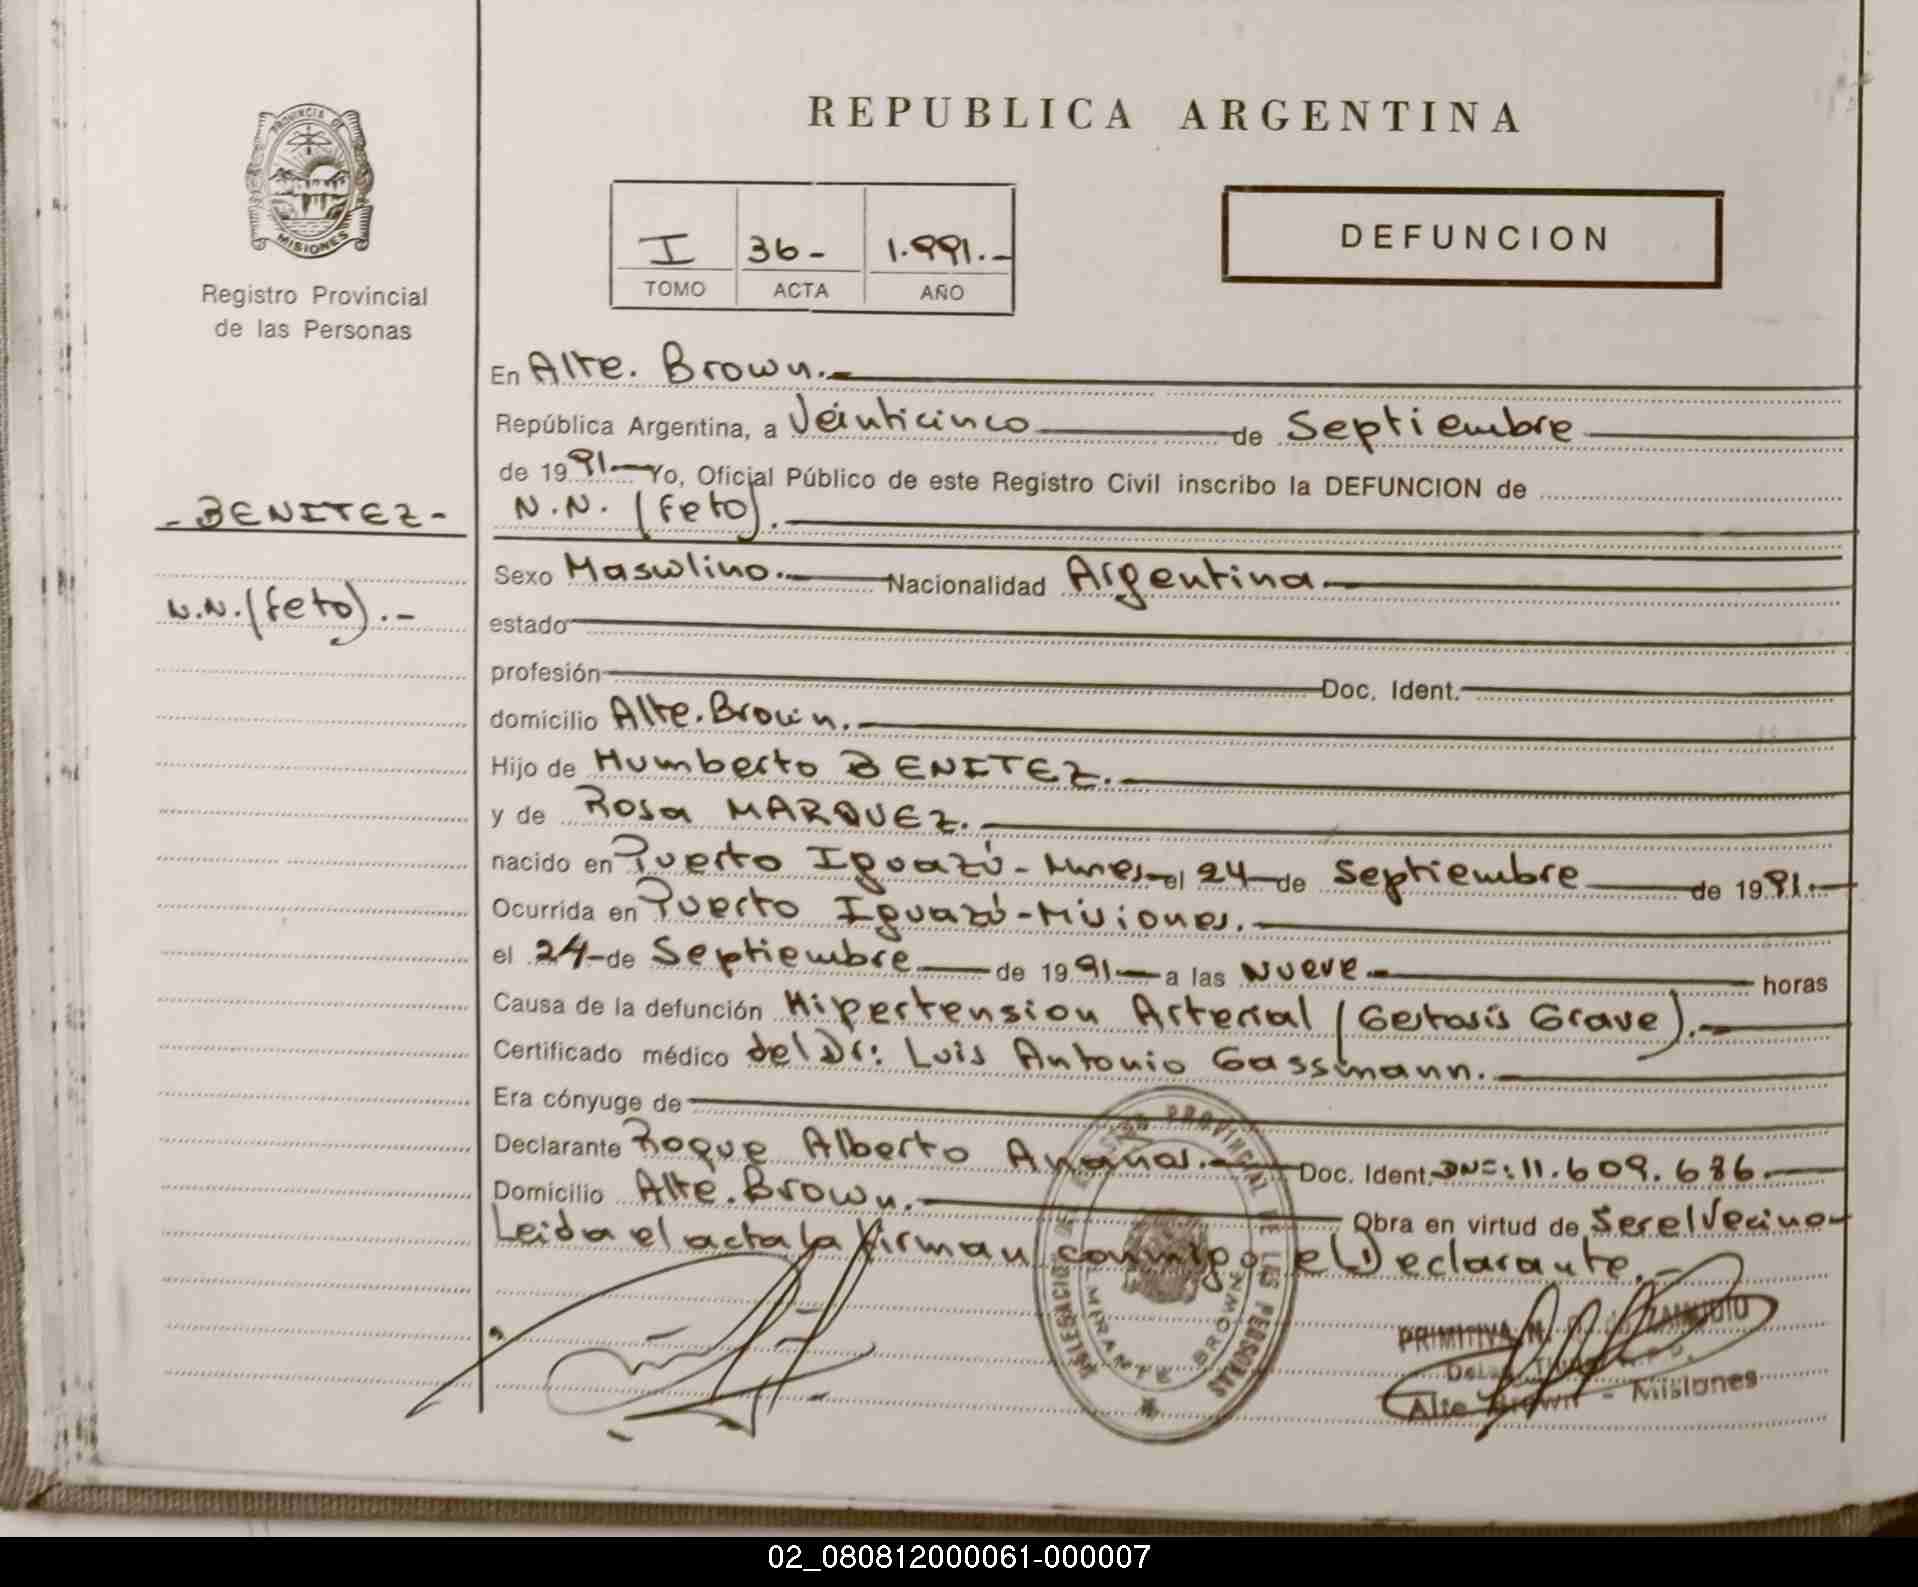 REPUBLICA ARGENTINA
PROVINCIA DE
MISIONES
Registro Provincial
de las Personas
I 36- 1.991.-
TOMO ACTA AÑO
DEFUNCION
En Alte. Brown.-
República Argentina, a Veinticinco de Septiembre
de 1991 Yo, Oficial Público de este Registro Civil inscribo la DEFUNCION de
-BENITEZ-
N.N. (feto).
Sexo Masculino. Nacionalidad Argentina
N.N. (feto).-
estado
profesión Doc. Ident.
domicilio Alte. Brown.
Hijo de Humberto BENITEZ.
y de Rosa MARQUEZ.
nacido en Puerto Iguazú - Mnes el 24 de Septiembre de 1991.-
Ocurrida en Puerto Iguazú - Misiones.
el 24 de Septiembre de 1991 a las Nueve horas
Causa de la defunción Hipertension Arterial (Gestosis Grave).-
Certificado médico del Dr: Luis Antonio Gassmann.
Era cónyuge de
Declarante Roque Alberto Doc. Ident. : 11.609.686.
Domicilio Alte. Brown. Obra en virtud de Ser el Vecino-
Leida el acta la firman conmigo el Declarante.-
PROVINCIAL DE LAS PERSONAS
BROWN
PRIMITIVA
Alte Brown - Misiones
02_080812000061-000007